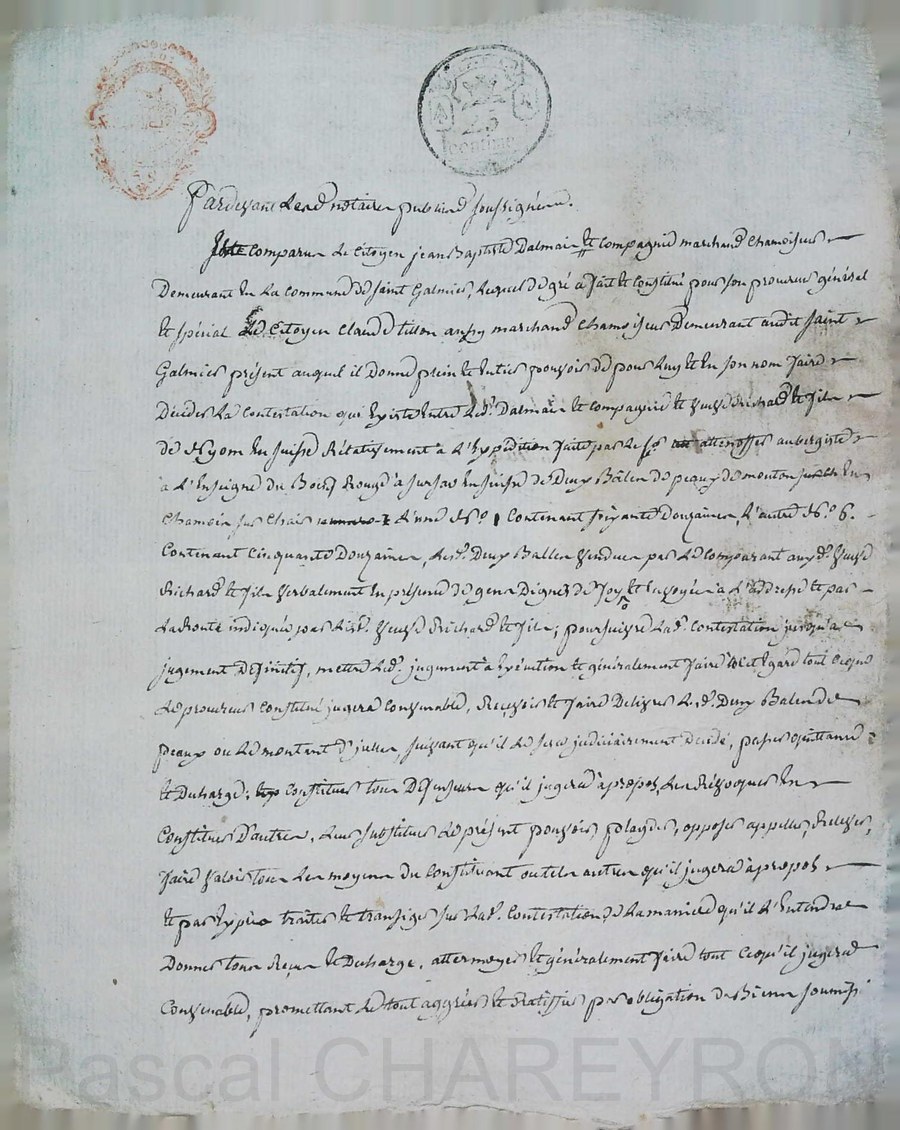 25
centimes
Pardevant Les notaires publics soussignés.
Est Comparu Le Citoyen jean Baptiste Dalmais et Compagnie marchand Chamoiseur
Demeurant En La Commune de Saint Galmier, Lequel de gré a fait et Constitué pour son procureur général
et spécial Le Citoyen Claude tillon aussy marchand Chamoiseur Demeurant audit Saint
Galmier présent auquel il Donne plein et Entier pouvoir de pour Luy et En son nom faire
Décider La Contestation qui Existe Entre Led. Dalmais et Compagnie et veuve Richard et fils
de Nyom En suisse Rélativement à L'Expédition faite par Le sr. attenoffer aubergiste
à L'Enseigne du Boeuf Rouge à En suisse de Deux Bâles de peaux de mouton En
Chamois sur Chair L'une N.o 1 Contenant soixante Douzaines, L'autre N.o 6.
Contenant Cinquante Douzaines, Lesd. Deux Balles vendues par Le Comparant auxd. veuve
Richard et fils verbalement En présence de gens Dignes de foy et Envoyés à L'addresse et par
La Route indiquée par Lesd. veuve Richard et fils; poursuivre Lad. Contestation jusqu'a
jugement Définitif, mettre Led. jugement à Exécution et généralement faire à Cet Egard tout Ce que
Le procureur Constitué jugera Convenable, Recevoir et faire Délivrer Lesd. Deux Bales de
peaux ou Le montant d'jcelles, suivant qu'il Le sera judiciairement Décidé, passer quittance
et Décharge; Constituer tous Défenseurs qu'il jugera à propos, Les Révoquer En
Constituer D'autres, Leur substituer Le présent pouvoir, plaider, opposer appeller, Relever,
faire valoir tous Les moyens du Constituant ou tels autres qu'il jugera à propos
et par Exprès traiter et transiger sur Lad. Contestation, de La maniere qu'il L'Entendra
Donner tous Reçus et Décharge, attermoyer et généralement faire tout Ce qu'il jugera
Convenable, promettant Le tout aggréer et Ratiffier par obligation de Biens soumis.
Pascal CHAREYRON